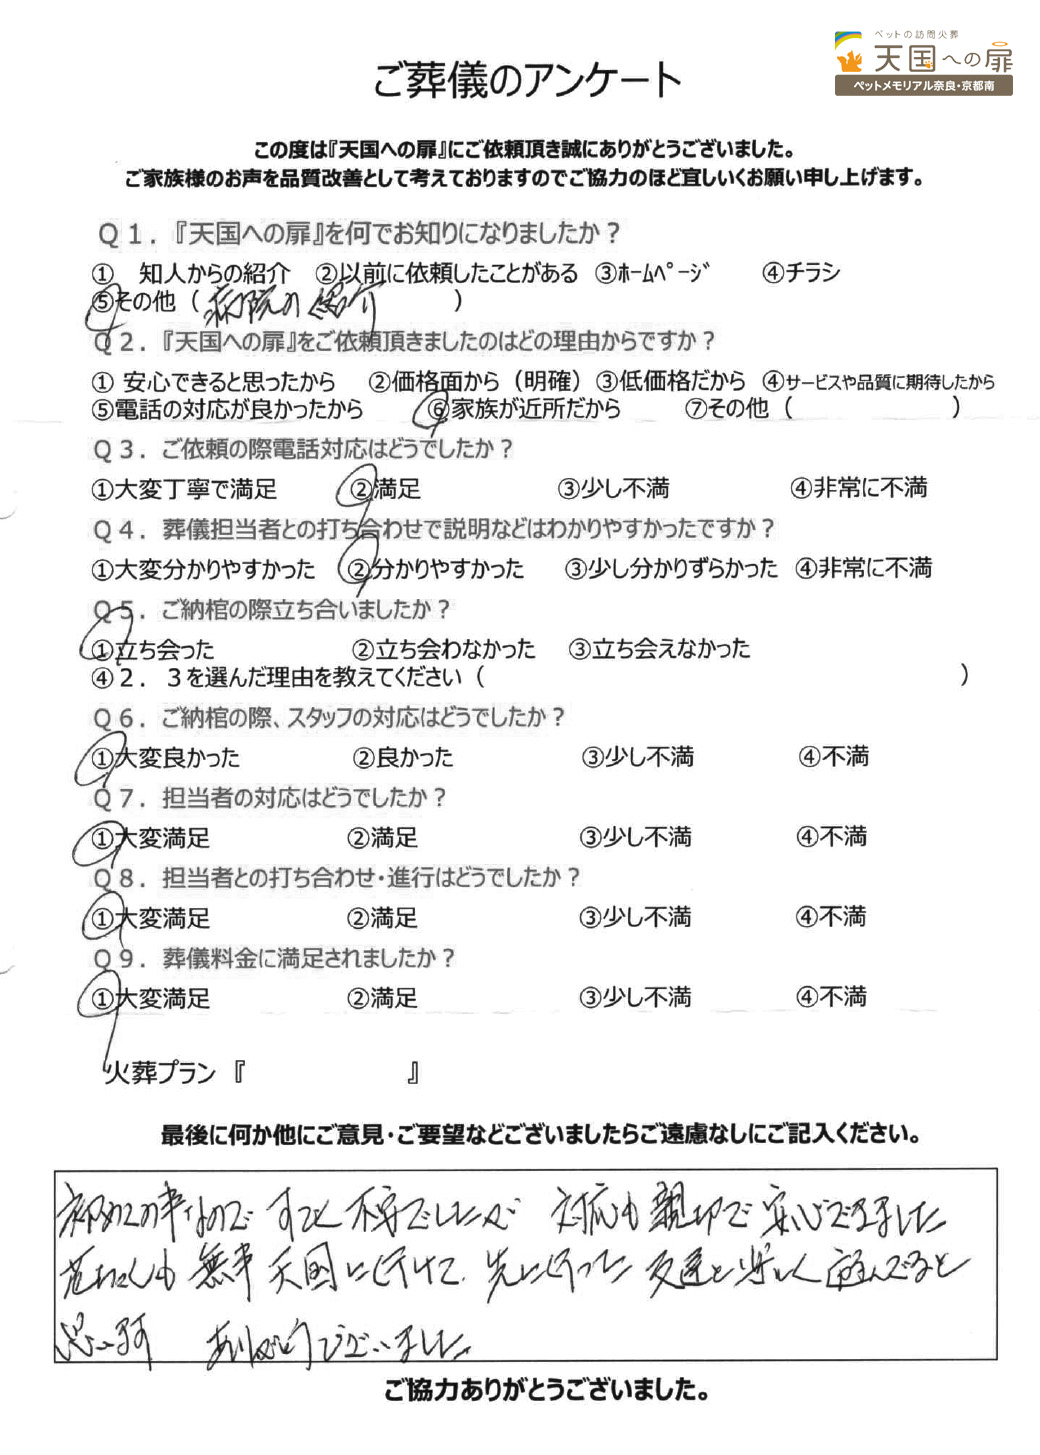 ペットの訪問火葬
天国への扉
ペットメモリアル奈良・京都南
ご葬儀のアンケート
この度は『天国への扉』にご依頼頂き誠にありがとうございました。
ご家族様のお声を品質改善として考えておりますのでご協力のほど宜しいくお願い申し上げます。
Q1．『天国への扉』を何でお知りになりましたか？
① 知人からの紹介 ②以前に依頼したことがある ③ﾎｰﾑﾍﾟｰｼﾞ ④チラシ
⑤その他（病院の紹介）
Q2．『天国への扉』をご依頼頂きましたのはどの理由からですか？
① 安心できると思ったから ②価格面から（明確）③低価格だから ④サービスや品質に期待したから
⑤電話の対応が良かったから ⑥家族が近所だから ⑦その他（ ）
Q3．ご依頼の際電話対応はどうでしたか？
①大変丁寧で満足 ②満足 ③少し不満 ④非常に不満
Q4．葬儀担当者との打ち合わせで説明などはわかりやすかったですか？
①大変分かりやすかった ②分かりやすかった ③少し分かりずらかった ④非常に不満
Q5．ご納棺の際立ち合いましたか？
①立ち会った ②立ち会わなかった ③立ち会えなかった
④２．３を選んだ理由を教えてください（ ）
Q6．ご納棺の際、スタッフの対応はどうでしたか？
①大変良かった ②良かった ③少し不満 ④不満
Q7．担当者の対応はどうでしたか？
①大変満足 ②満足 ③少し不満 ④不満
Q8．担当者との打ち合わせ・進行はどうでしたか？
①大変満足 ②満足 ③少し不満 ④不満
Q9．葬儀料金に満足されましたか？
①大変満足 ②満足 ③少し不満 ④不満
火葬プラン『 』
最後に何か他にご意見・ご要望などございましたらご遠慮なしにご記入ください。
初めての事なので すごく不安でしたが 対応も親切で安心できました
無事天国に行けて、先に行った友達と楽しく遊んでると
思います ありがとうございました
ご協力ありがとうございました。